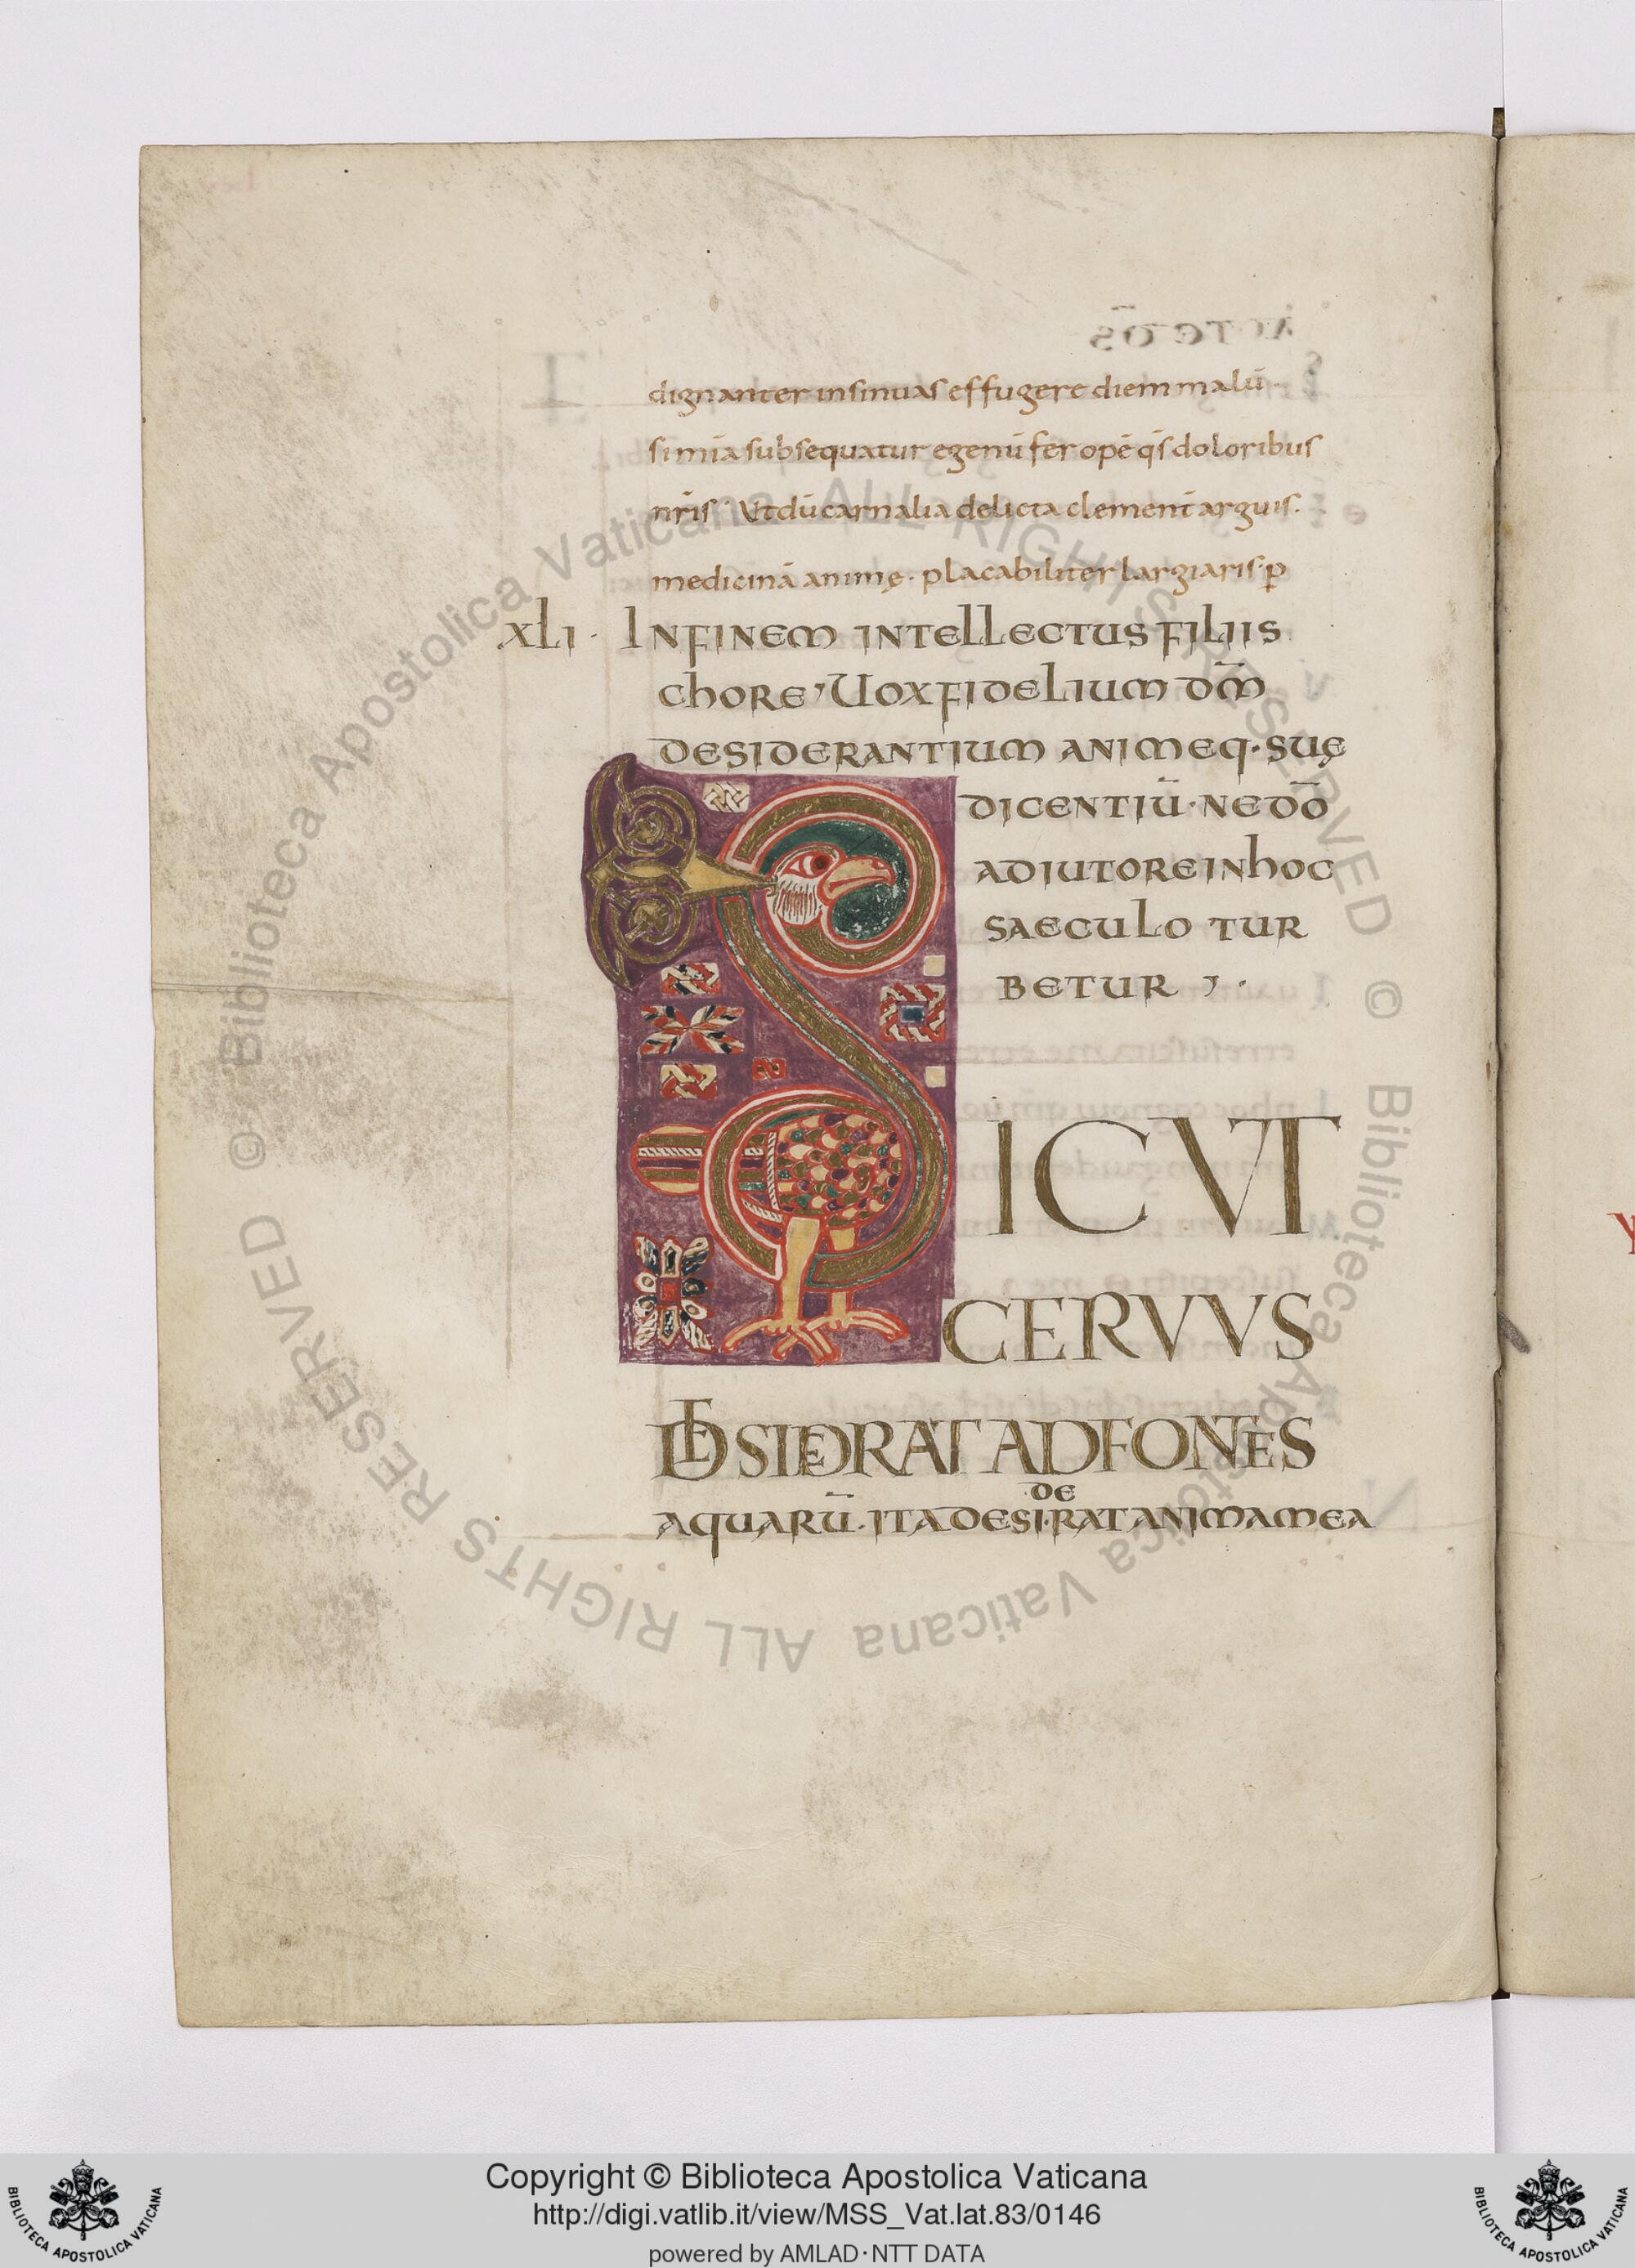 dignanter insinuas effugere diem malū·
si mīa subsequatur egenū fer opē qs̄ doloribus
nr̄is· Ut dū carnalia delicta clement̄ arguis·
medicinā animę· placabiliter largiaris· p
XLI· IN FINEM INTELLECTUS FILIIS
CHORE, UOX FIDELIUM DM̄
DESIDERANTIUM ANIMEQ· SUĘ
DICENTIŪ· NE DŌ
ADIUTORE IN HOC
SAECULO TUR
BETUR ,·
SICVT
CERVVS
DESIDERAT AD FONTES
AQUARŪ· ITA DESI·RAT ANIMA MEA
DE
© Biblioteca Apostolica Vaticana ALL RIGHTS RESERVED © Biblioteca Apostolica Vaticana ALL RIGHTS RESERVED
Copyright © Biblioteca Apostolica Vaticana
http://digi.vatlib.it/view/MSS_Vat.lat.83/0146
powered by AMLAD·NTT DATA
BIBLIOTECA APOSTOLICA VATICANA
BIBLIOTECA APOSTOLICA VATICANA